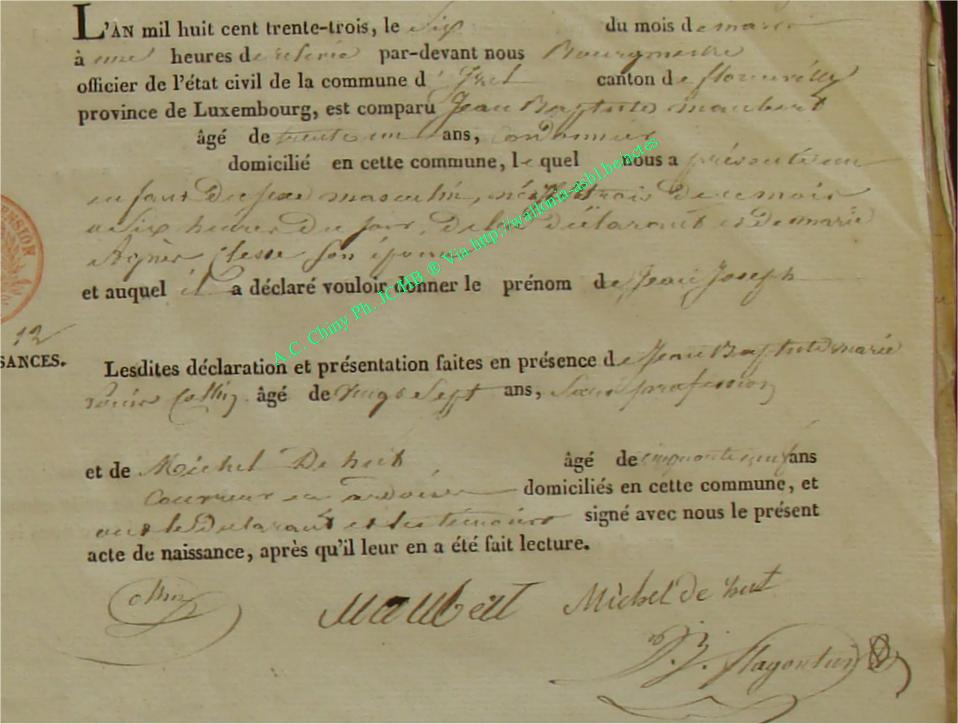 L'AN mil huit cent trente-trois, le six du mois de mars
à une heures de relevée par-devant nous Bourgmestre
officier de l'état civil de la commune d' Izel canton de florenville
province de Luxembourg, est comparu Jean Baptiste maubert
âgé de trente un ans, cordonnier
domicilié en cette commune, le quel nous a présenté un
enfant du sexe masculin, né le trois de ce mois
a six heures du soir, de lui déclarant et de marie
Agnès son épouse
et auquel il a déclaré vouloir donner le prénom de Jean Joseph
12
SANCES.
Lesdites déclaration et présentation faites en présence de Jean Baptiste marie
Collin âgé de vingt Sept ans, Sans profession
et de Michel De hut âgé de cinquante neuf ans
Couvreur en ardoise domiciliés en cette commune, et
ont le Déclarant et les témoins signé avec nous le présent
acte de naissance, après qu'il leur en a été fait lecture.
Collin Maubert Michel De hut
A.C. Chiny Ph. JC.MB ® Via http://wallonia-asbl.be/actes